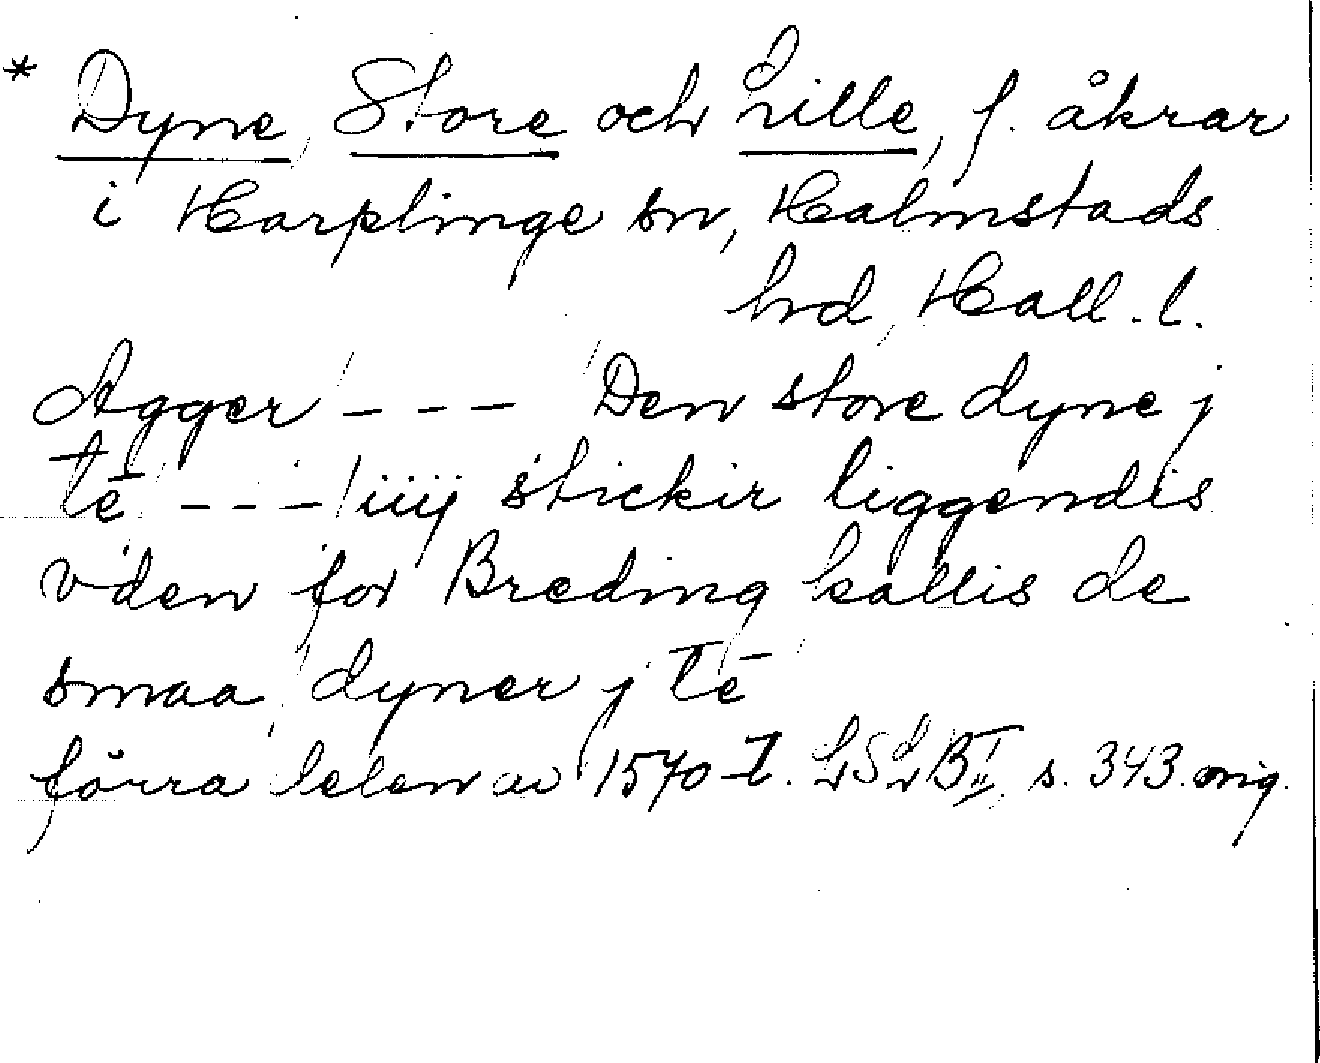 * Dyne, Store och Lille, f. åkrar
i Harplinge sn, Halmstads
hrd, Hall. l.
Agger - - - Den store dyne j
tē - - - iiij stickir liggendis
vden for Breding kallis de
smaa dyner j tē
förra delen av 1570-t. LSLB II, s. 343. orig.